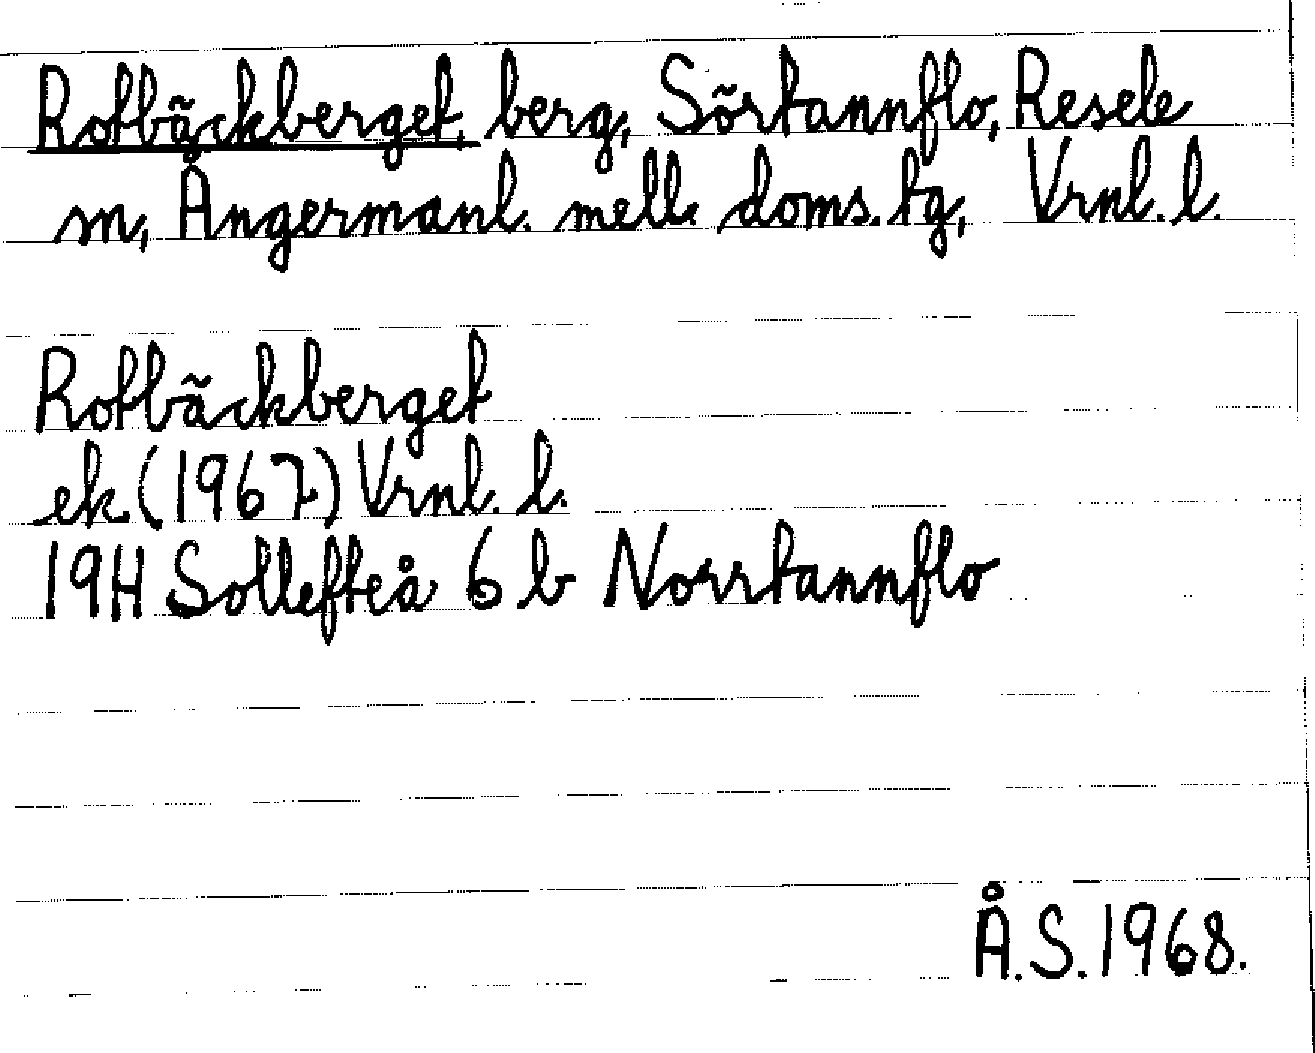 Rotbäckberget, berg, Sörtannflo, Resele
sn, Ångermanl. mell. doms. tg, Vrnl. l.
Rotbäckberget
ek (1967) Vrnl. l.
19H Sollefteå 6 b Norrtannflo
Å.S. 1968.